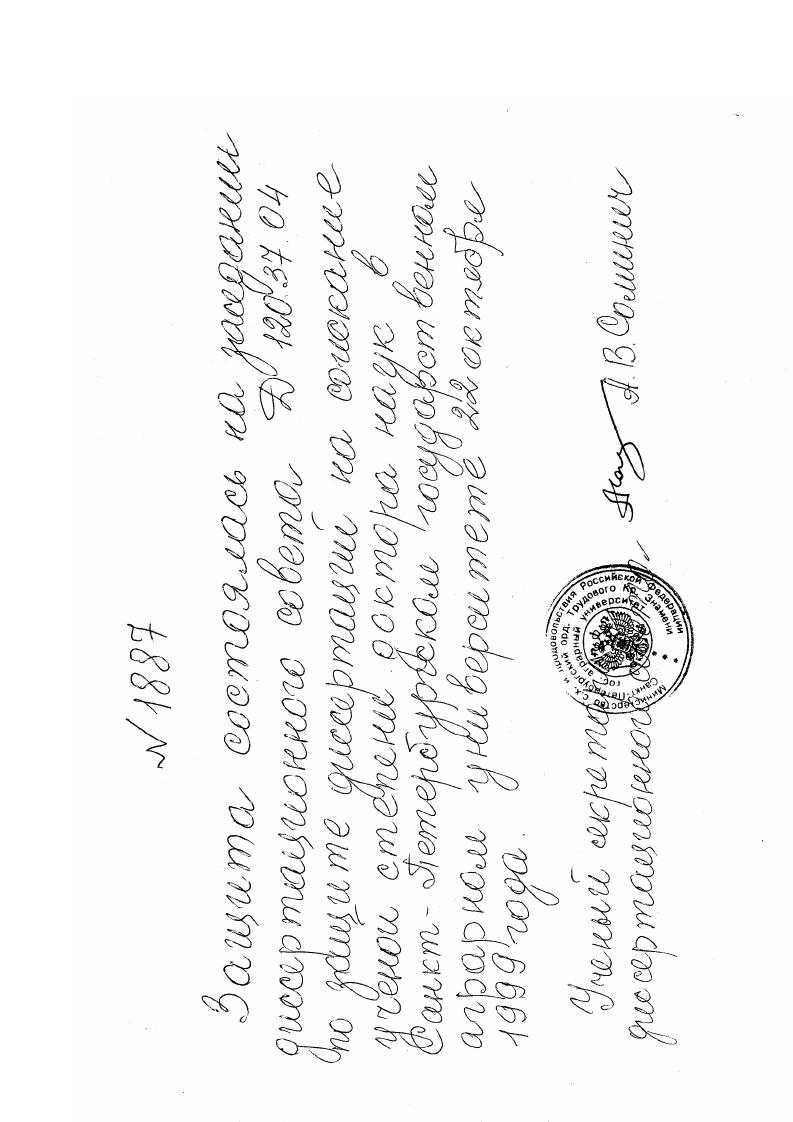 N 1887
Защита состоялась на заседании
диссертационного совета Д 120.37.04
по защите диссертаций на соискание
ученой степени доктора наук в
Санкт-Петербургском государственном
аграрном университете 22 октября
1999 года.
Ученый
диссертационного А.В. Солминич
Министерство с.х. и продовольствия Российской Федерации
Санкт-Петербургский орд. Трудового Кр. Знамени
гос. аграрный университет